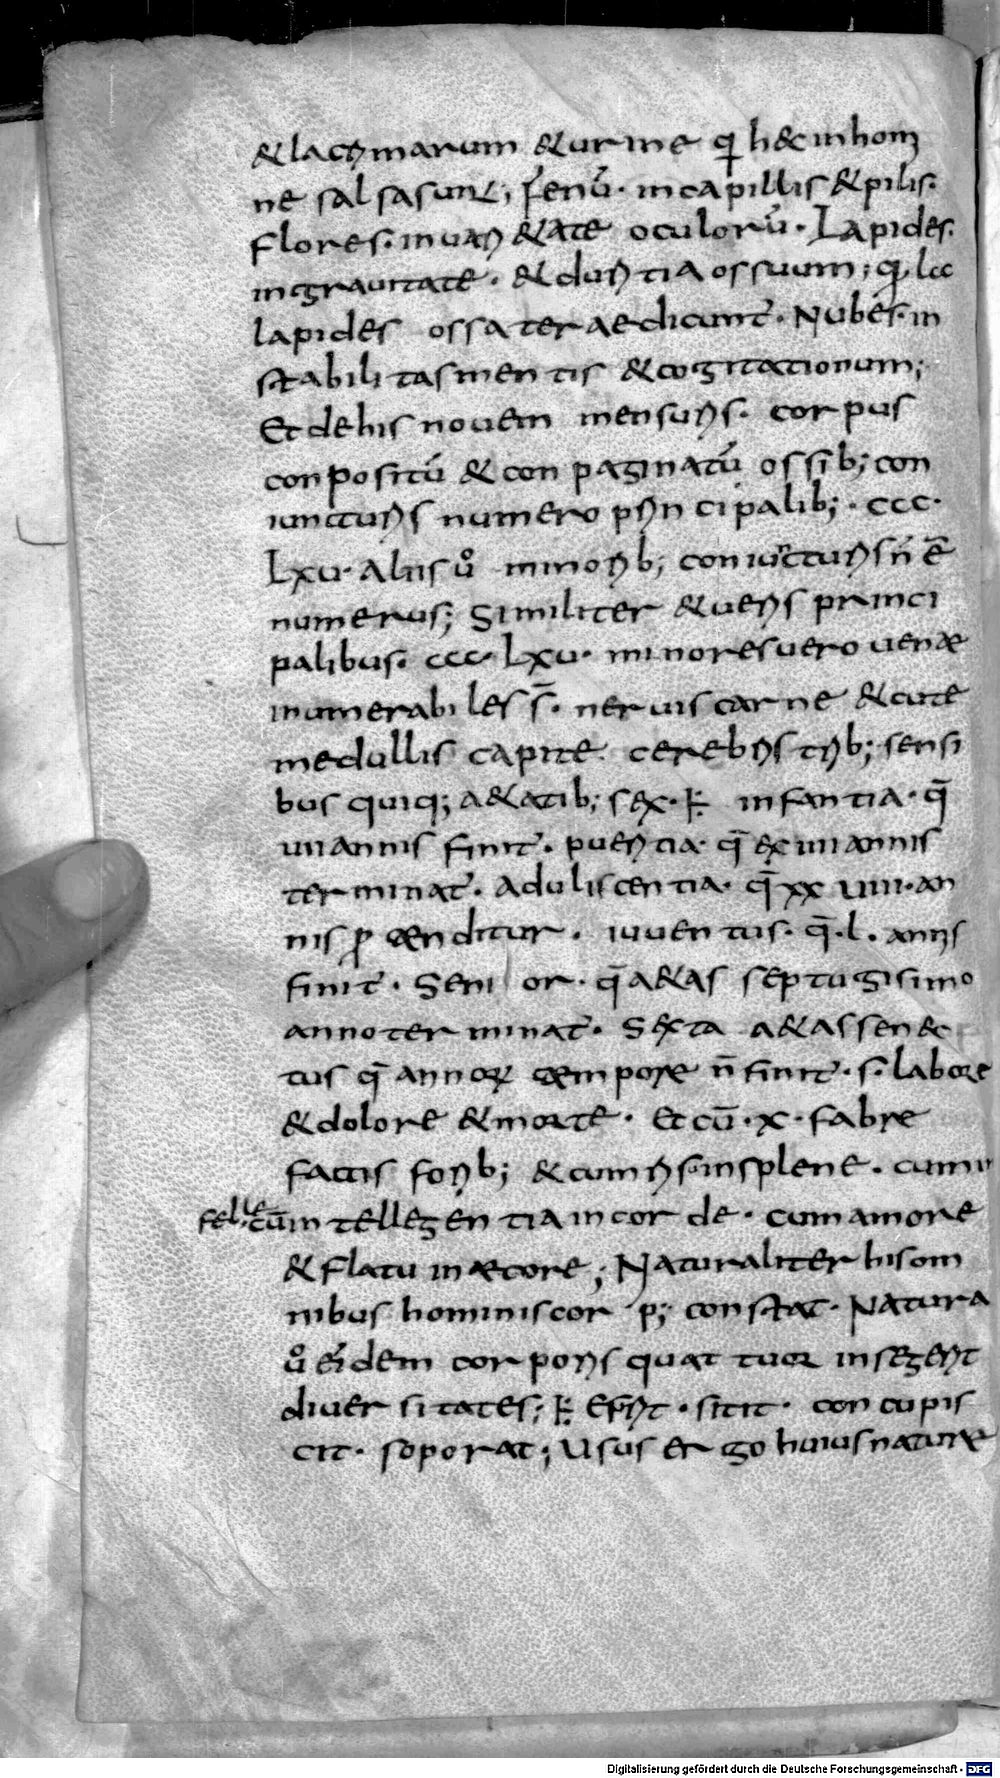 &lacrimarum &urine qi h&c inhomi
ne salsasunt; fenū· incapillis &pilis·
flores· inuari&ate oculorū· Lapides·
ingrauitate· &duritia ossuum; qi
lapides ossa terrae dicunt̄· Nubes· in
stabilitas mentis &cogitationum;
Et dehis nouem mensuris· corpus
conpositū &conpaginatū ossib; con
iuncturis numero principalib;· ccc·
Lxu· Aliis uo minorib; coniuncturis n̄ ē
numerus; Similiter &ueris princi
palibus· ccc· Lxu· minores uero uenæ
inumerabiles s̄· neruis carne &cute
medullis capite cerebris trib; sensi
bus quiq; a&atib; sex· infantia· q̄
uii annis finit̄· pueritia· q̄ ex uii annis
terminat̄· Aduliscentia· q̄ xx uiiii· an
nis p tenditur· iuuentus· q̄· l· annis
finit̄· Seni or· q̄ a&as septugisimo
anno terminat̄· Sexta a&as sen&c
tus q̄ annorum tempore n̄ finit̄· s· labore
&dolore &morte· Et cū· x· fabre
factis forib; &cum risu insplene· cum in
felle· cūintellegentia incorde· cum amore
&flatu in æcore; Naturaliter his om
nibus hominis cor p; constat· Natura
uo eidem corporis quattuor insegerit
diuersitates; esurit· sitit· concupis
cit· soporat; Usus ergo huius naturæ
Digitalisierung gefördert durch die Deutsche Forschungsgemeinschaft - DFG